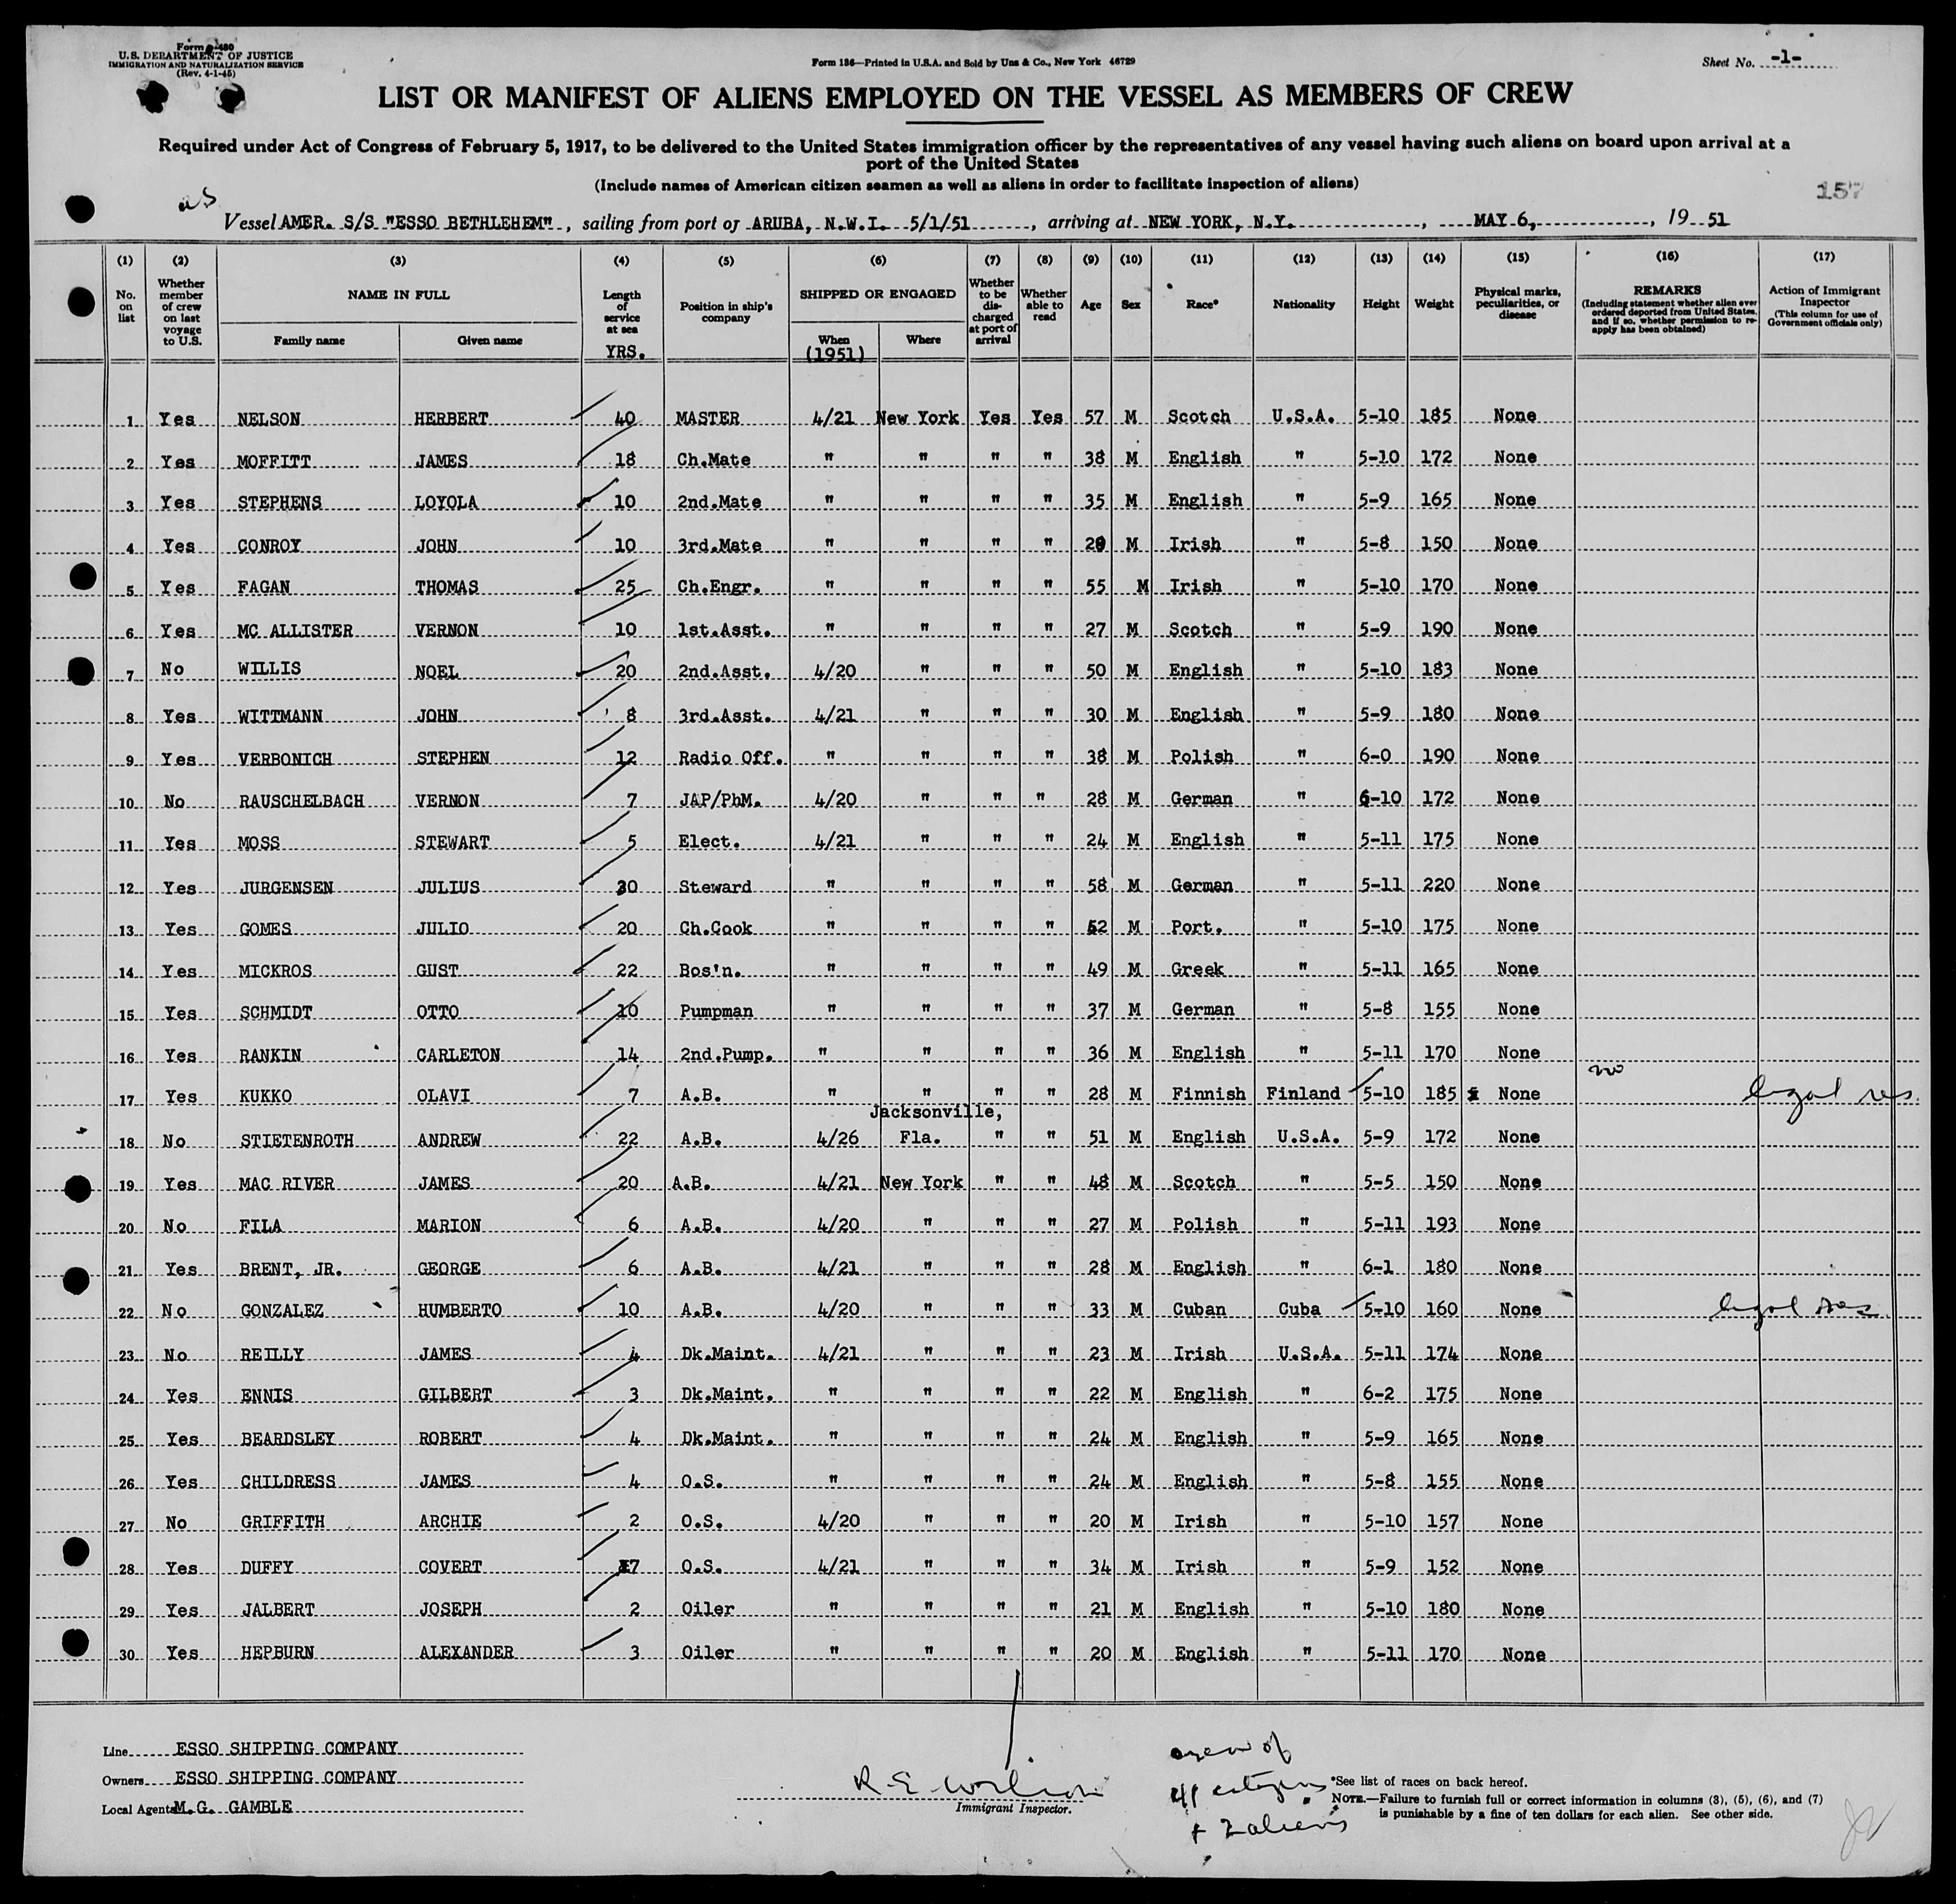 Form I-480
U.S. DEPARTMENT OF JUSTICE
IMMIGRATION AND NATURALIZATION SERVICE
(Rev. 4-1-45)
Form 136—Printed in U.S.A. and Sold by Unz & Co., New York 46729
Sheet No. -1-
LIST OR MANIFEST OF ALIENS EMPLOYED ON THE VESSEL AS MEMBERS OF CREW
Required under Act of Congress of February 5, 1917, to be delivered to the United States immigration officer by the representatives of any vessel having such aliens on board upon arrival at a
port of the United States
(Include names of American citizen seamen as well as aliens in order to facilitate inspection of aliens)
157
Vessel AMER. S/S "ESSO BETHLEHEM", sailing from port of ARUBA, N.W.I. 5/1/51, arriving at NEW YORK, N.Y., MAY 6, 19 51
(1) No. on list (2) Whether member of crew on last voyage to U.S. (3) NAME IN FULL Family name Given name (4) Length of service at sea YRS. (5) Position in ship's company (6) SHIPPED OR ENGAGED When (1951) Where (7) Whether to be discharged at port of arrival (8) Whether able to read (9) Age (10) Sex (11) Race* (12) Nationality (13) Height (14) Weight (15) Physical marks, peculiarities, or disease (16) REMARKS (Including statement whether alien ever ordered deported from United States, and if so, whether permission to reapply has been obtained) (17) Action of Immigrant Inspector (This column for use of Government officials only)
1 Yes NELSON HERBERT 40 MASTER 4/21 New York Yes Yes 57 M Scotch U.S.A. 5-10 185 None
2 Yes MOFFITT JAMES 18 Ch.Mate " " " " 38 M English " 5-10 172 None
3 Yes STEPHENS LOYOLA 10 2nd.Mate " " " " 35 M English " 5-9 165 None
4 Yes CONROY JOHN 10 3rd.Mate " " " " 28 M Irish " 5-8 150 None
5 Yes FAGAN THOMAS 25 Ch.Engr. " " " " 55 M Irish " 5-10 170 None
6 Yes MC ALLISTER VERNON 10 1st.Asst. " " " " 27 M Scotch " 5-9 190 None
7 No WILLIS NOEL 20 2nd.Asst. 4/20 " " " 50 M English " 5-10 183 None
8 Yes WITTMANN JOHN 8 3rd.Asst. 4/21 " " " 30 M English " 5-9 180 None
9 Yes VERBONICH STEPHEN 12 Radio Off. " " " " 38 M Polish " 6-0 190 None
10 No RAUSCHELBACH VERNON 7 JAP/PhM. 4/20 " " " 28 M German " 6-10 172 None
11 Yes MOSS STEWART 5 Elect. 4/21 " " " 24 M English " 5-11 175 None
12 Yes JURGENSEN JULIUS 30 Steward " " " " 58 M German " 5-11 220 None
13 Yes GOMES JULIO 20 Ch.Cook " " " " 52 M Port. " 5-10 175 None
14 Yes MICKROS GUST 22 Bos'n. " " " " 49 M Greek " 5-11 165 None
15 Yes SCHMIDT OTTO 10 Pumpman " " " " 37 M German " 5-8 155 None
16 Yes RANKIN CARLETON 14 2nd.Pump. " " " " 36 M English " 5-11 170 None
17 Yes KUKKO OLAVI 7 A.B. " " " " 28 M Finnish Finland 5-10 185 None no legal res
18 No STIETENROTH ANDREW 22 A.B. 4/26 Jacksonville, Fla. " " 51 M English U.S.A. 5-9 172 None
19 Yes MAC RIVER JAMES 20 A.B. 4/21 New York " " 48 M Scotch " 5-5 150 None
20 No FILA MARION 6 A.B. 4/20 " " " 27 M Polish " 5-11 193 None
21 Yes BRENT, JR. GEORGE 6 A.B. 4/21 " " " 28 M English " 6-1 180 None
22 No GONZALEZ HUMBERTO 10 A.B. 4/20 " " " 33 M Cuban Cuba 5-10 160 None legal res
23 No REILLY JAMES 4 Dk.Maint. 4/21 " " " 23 M Irish U.S.A. 5-11 174 None
24 Yes ENNIS GILBERT 3 Dk.Maint. " " " " 22 M English " 6-2 175 None
25 Yes BEARDSLEY ROBERT 4 Dk.Maint. " " " " 24 M English " 5-9 165 None
26 Yes CHILDRESS JAMES 4 O.S. " " " " 24 M English " 5-8 155 None
27 No GRIFFITH ARCHIE 2 O.S. 4/20 " " " 20 M Irish " 5-10 157 None
28 Yes DUFFY COVERT 17 O.S. 4/21 " " " 34 M Irish " 5-9 152 None
29 Yes JALBERT JOSEPH 2 Oiler " " " " 21 M English " 5-10 180 None
30 Yes HEPBURN ALEXANDER 3 Oiler " " " " 20 M English " 5-11 170 None
Line ESSO SHIPPING COMPANY
Owners ESSO SHIPPING COMPANY
Local Agents M.G. GAMBLE
R E Wilson
Immigrant Inspector.
crew of
41 citizens
+ 2 aliens
*See list of races on back hereof.
NOTE.—Failure to furnish full or correct information in columns (3), (5), (6), and (7)
is punishable by a fine of ten dollars for each alien. See other side.